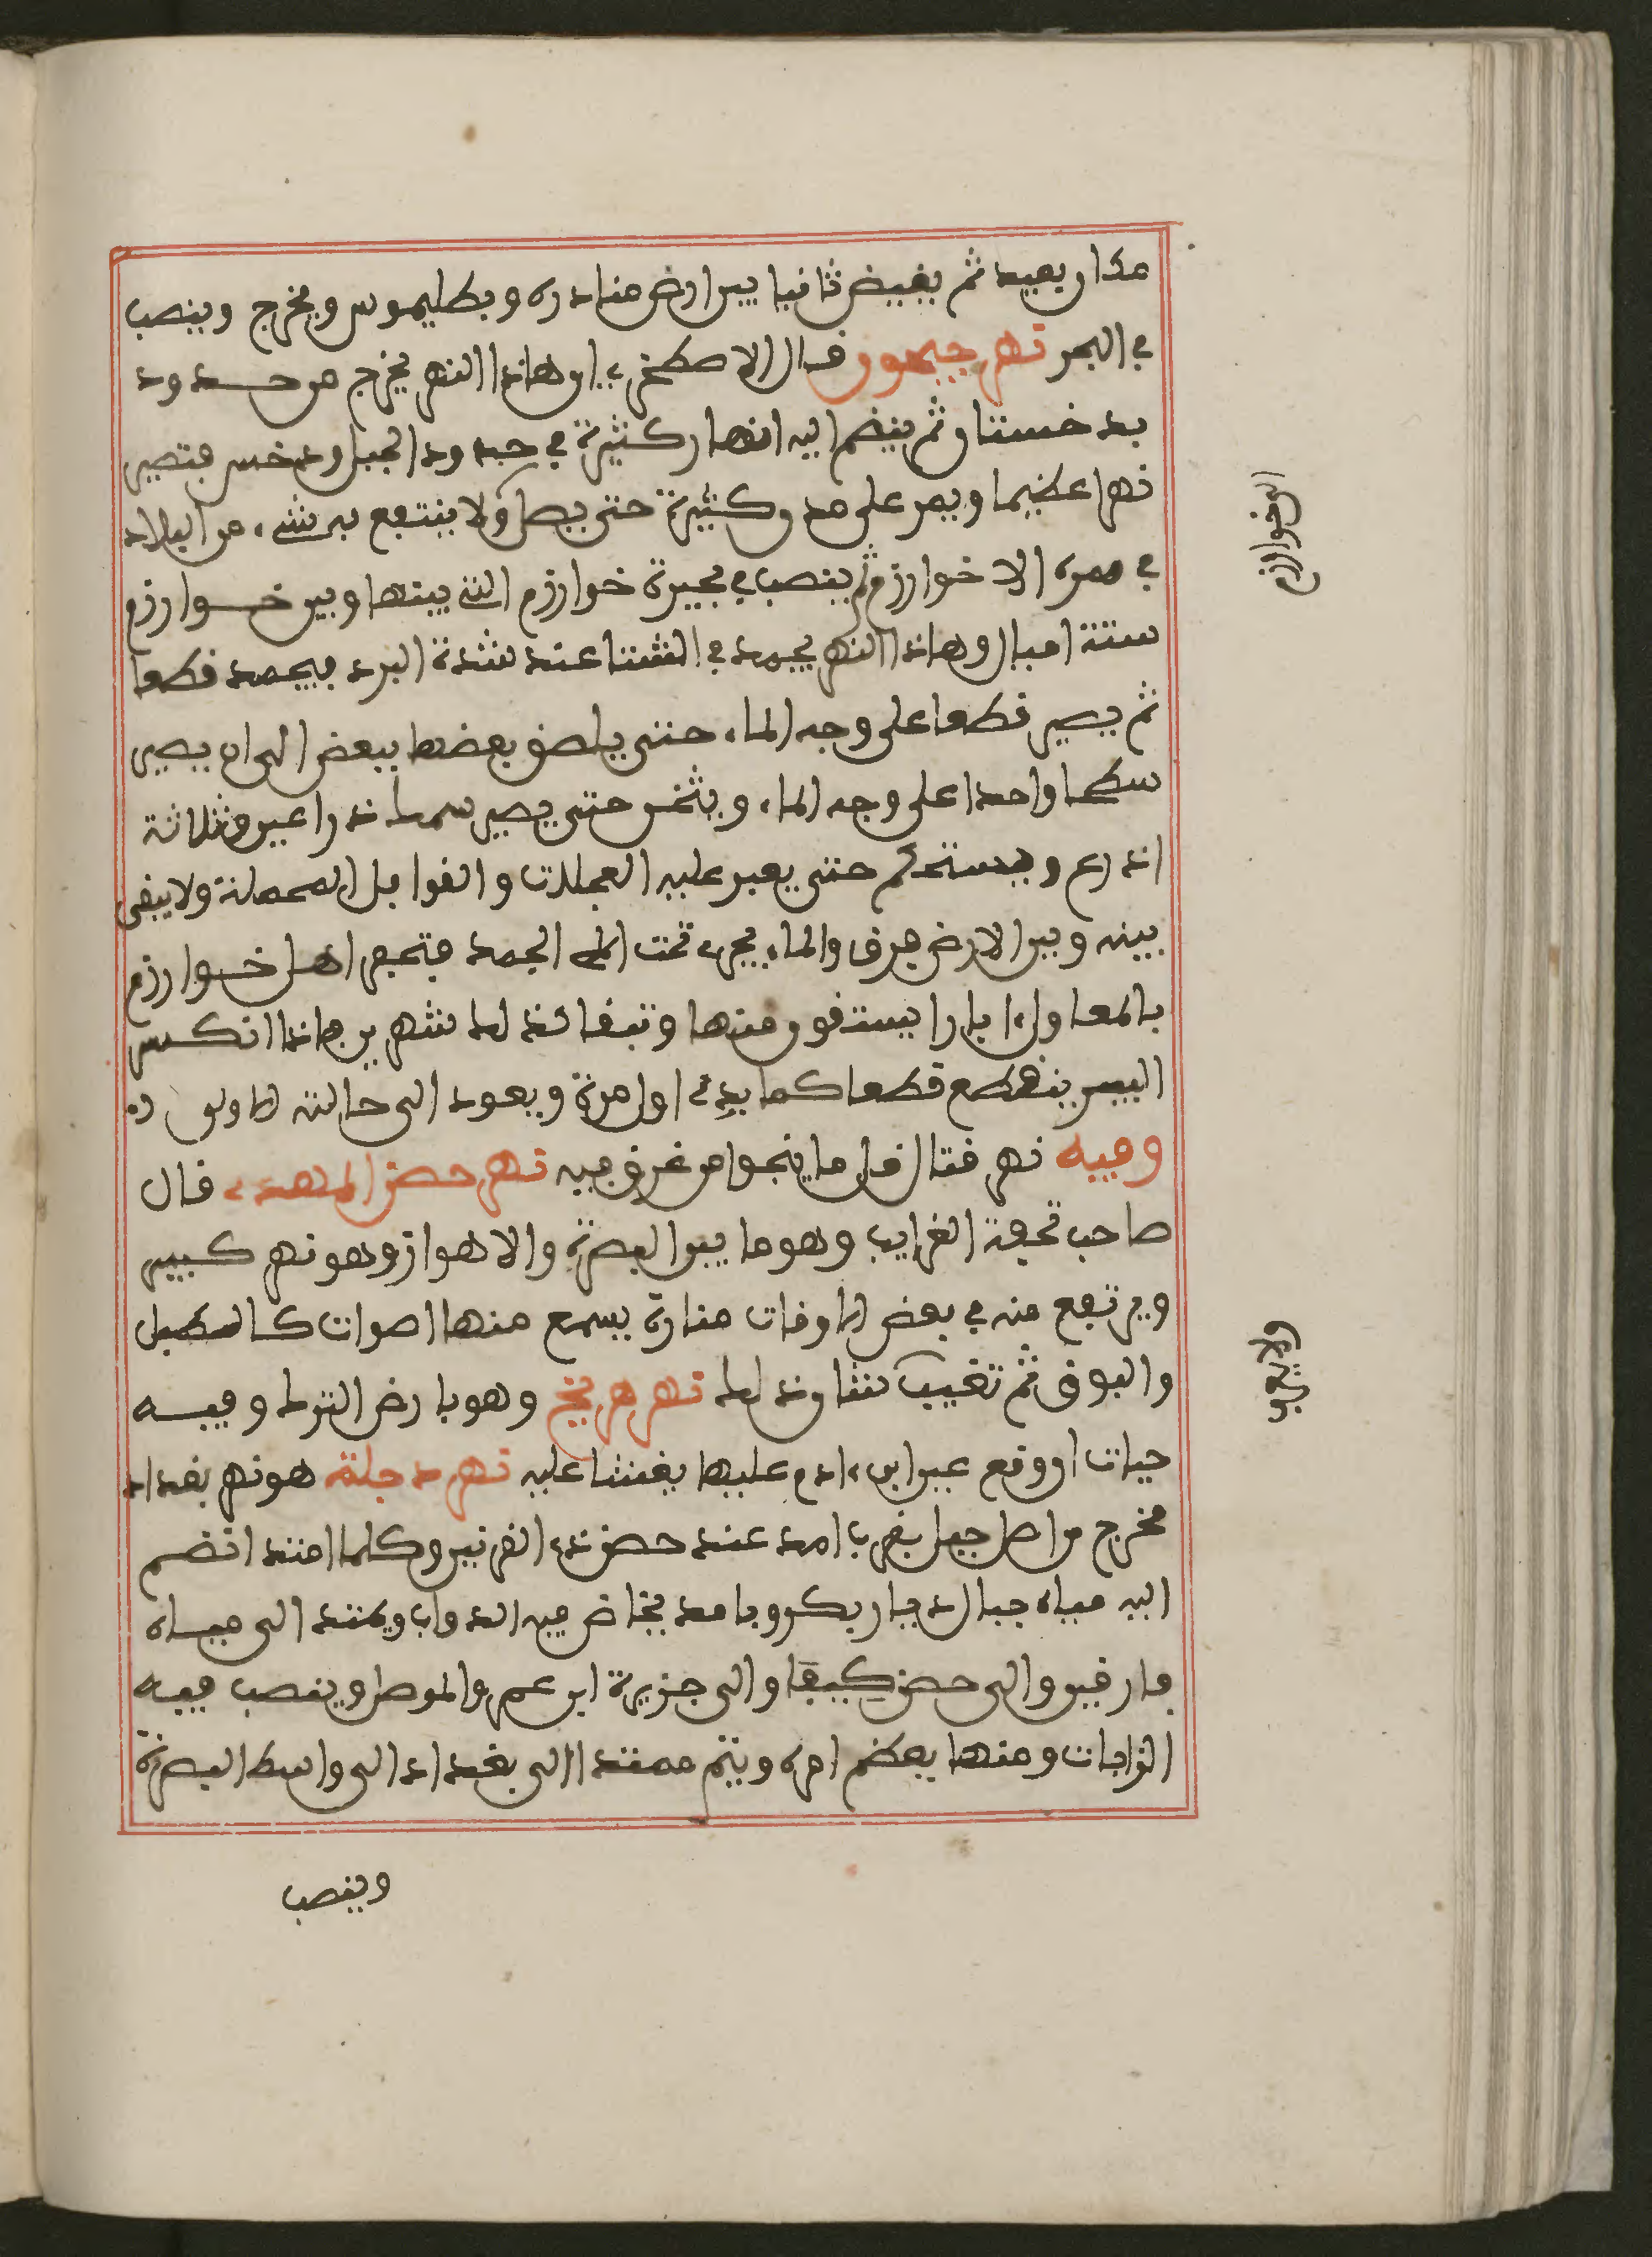 مكان بعيد ثم يغيض ثانيا بين ارض منادره وبطليموس ويخرج وينصب
في البحر نهر جيحون قال الاصطخري ان هاذا النهر يخرج من حدود
بدخستان ثم ينضم اليه انهار كثيرة في حدود الجبل ودخس فتصير
نهرا عظيما ويمر على مدن كثيرة حتى يصل ولا ينتفع به شيء من البلاد
في ممره الا خوارزم ثم ينصب في بحيرة خوارزم التي بينها وبين خوارزم
ستة اميال وهاذا النهر يجمد في الشتا عند شدة البرد فيجمد قطعا
ثم يصير قطعا على وجه الماء حتى يلصق بعضها ببعض الى ان يصير
سطحا واحدا على وجه الماء ويثخن حتى يصير سمكه ذراعين وثلاثة
اذرع ويستحكم حتى يعبر عليه العجلات والقوافل المحملة ولا يبقى
بينه وبين الارض فرق والماء يجري تحت الجمد فتحفر اهل خوارزم
بالمعاول ابارا يستقون منها وتبقا كذلك شهرين فاذا انكسر
البرد ينقطع قطعا كما بدئ اول مرة ويعود الى حالته الاولى
وفيه نهر قتال قل ما ينجوا من غرق فيه نهر حصن المهدي قال
صاحب تحفة الغرايب وهو ما بين البصرة والاهواز وهو نهر كبير
ويرتفع منه في بعض الاوقات منارة يسمع منها اصوات كالطبل
والبوق ثم تغيب نهر هريخ وهو بارض الترك وفيه
حيات اذا وقع عين ابن ادم عليها يغشا عليه نهر دجلة هو نهر بغداد
مخرج من اصل جبل بقرب امد عند حصن ذي القرنين وكلما امتد انضم
اليه مياه جبال ديار بكر وبامد يخاض فيه الدواب ويمتد الى مياه
فارقين والى حصن كيفا والى جزيرة ابن عمر والموصل وينصب فيه
الزابات ومنها يعظم امره ويتم ممتدا الى بغداد الى واسط البصرة
وينصب